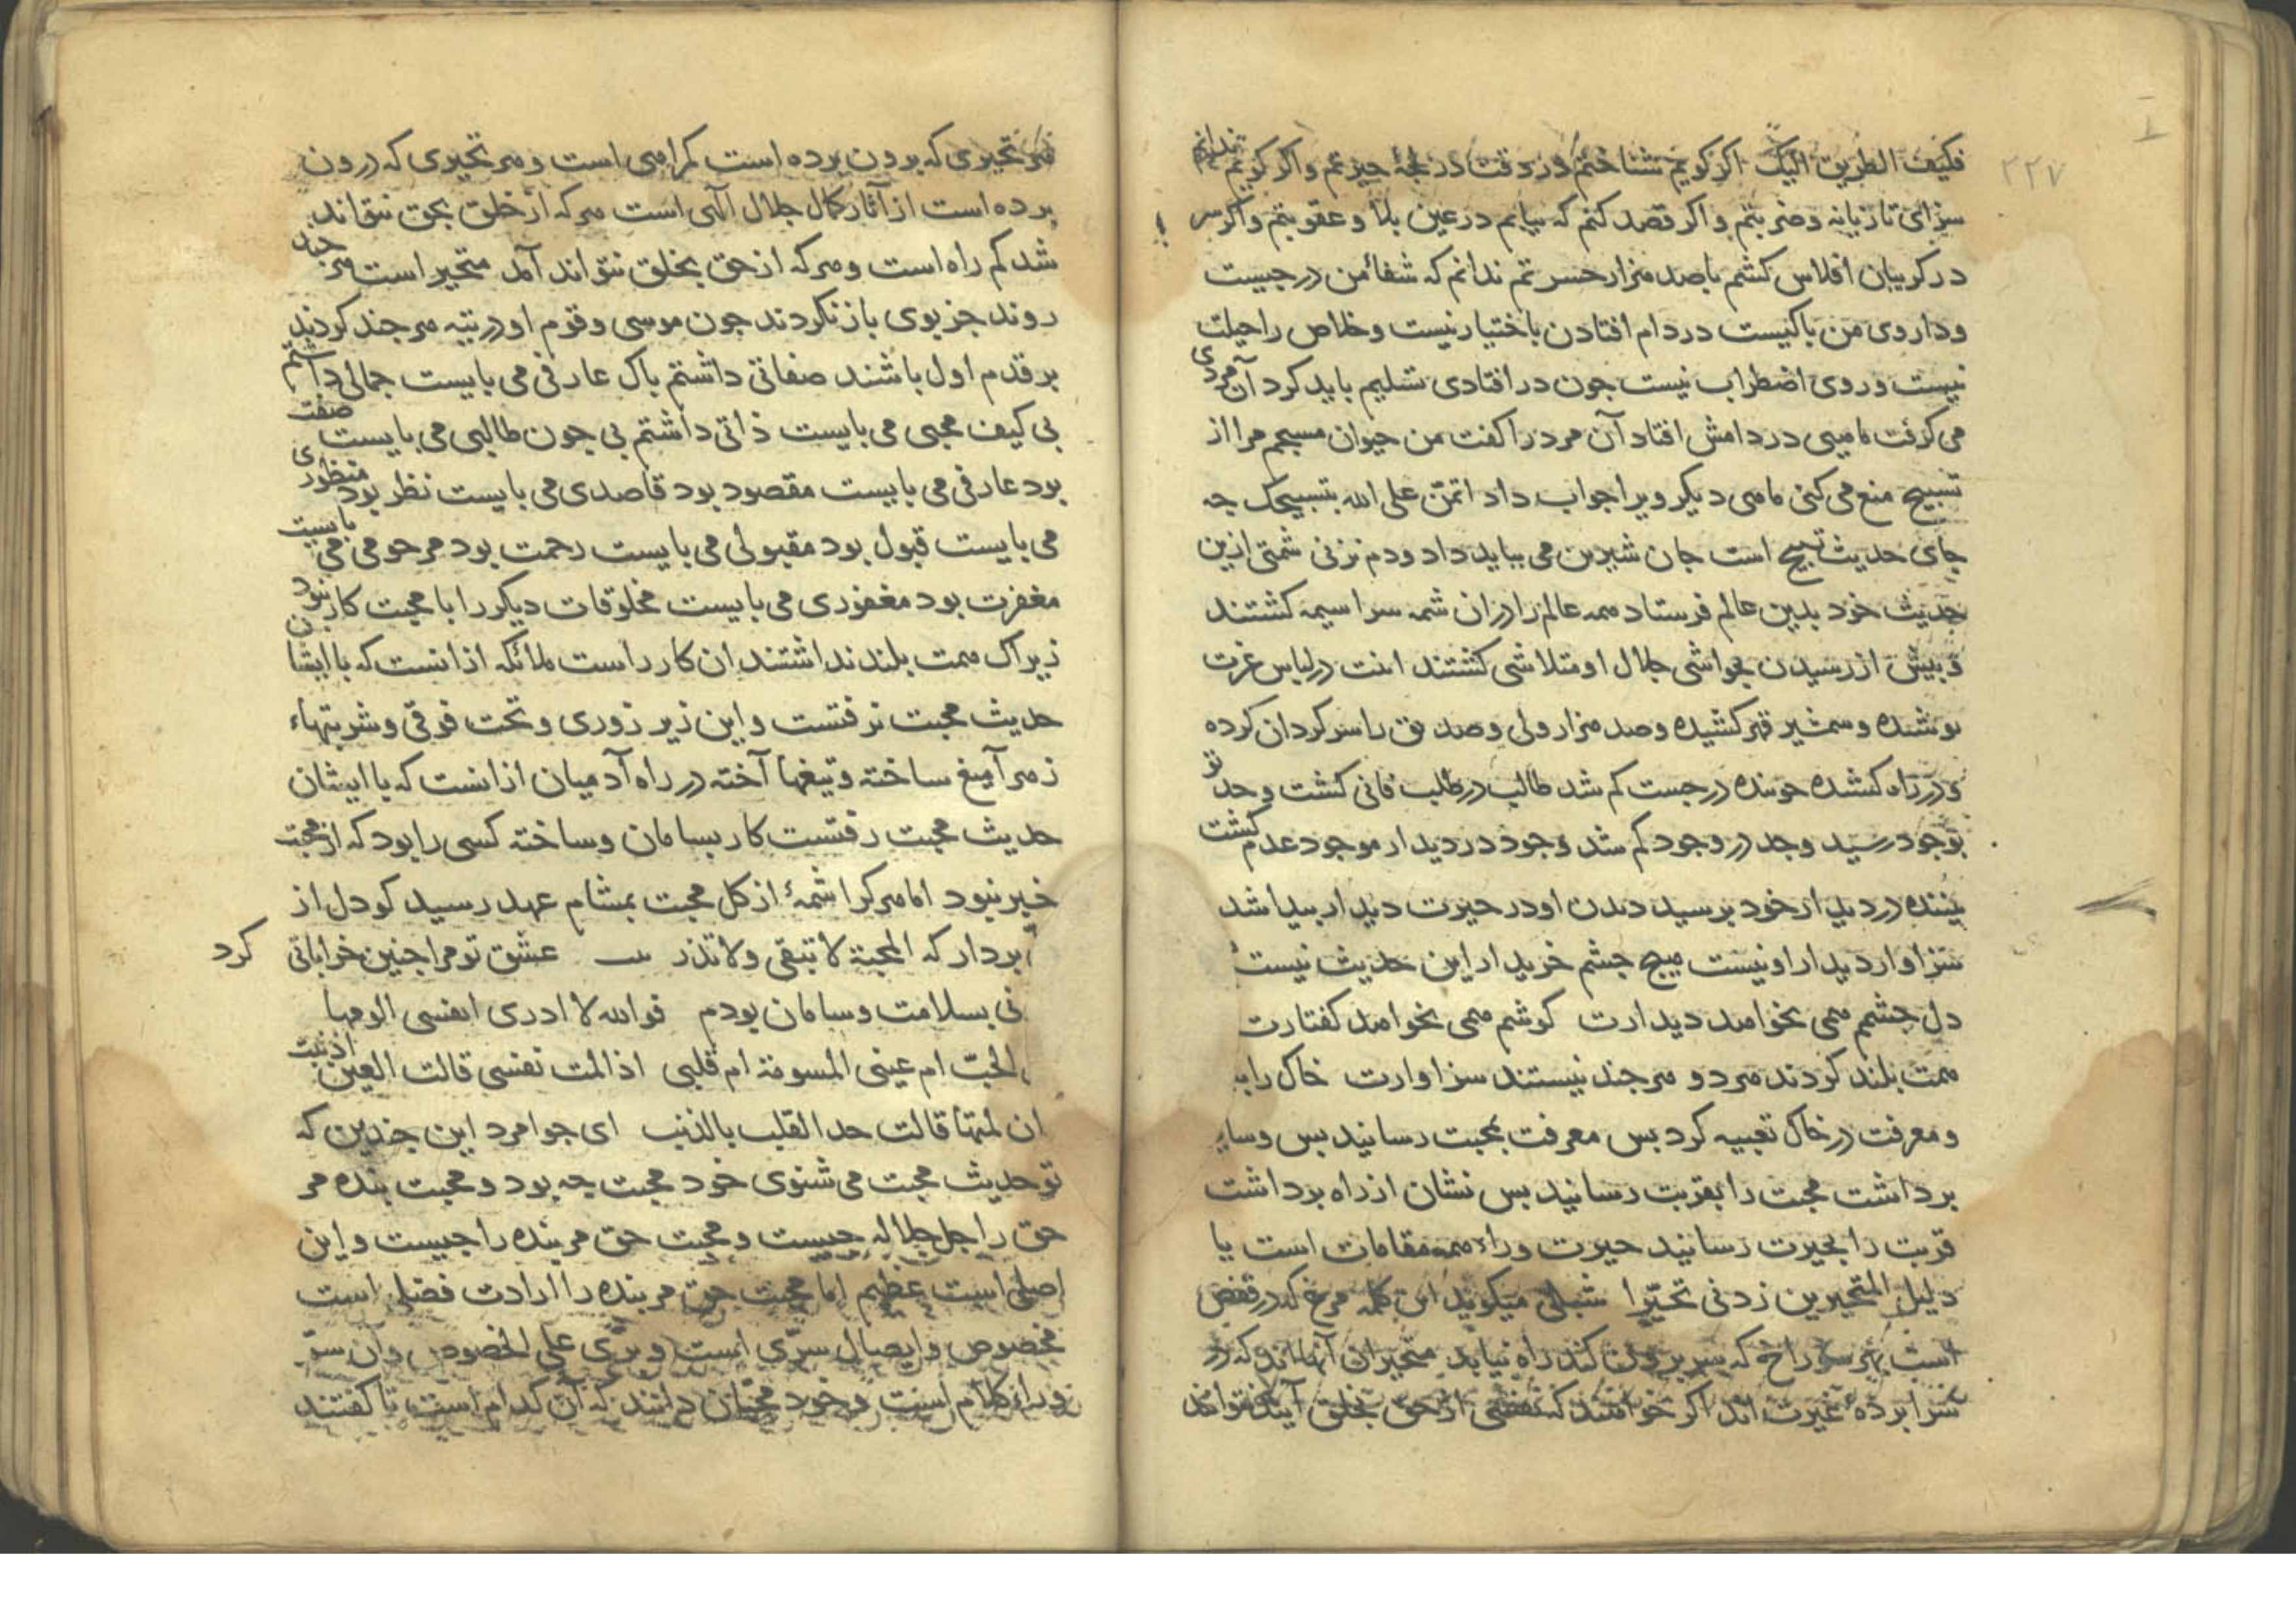 ۲۲۷
فکیف الطریق الیک اکر کویم شناختم در وقت در لجهٔ حیرتم واکر کویم ندانم
سزای تازیانه وضربتم واکر قصد کنم که بیابم در عین بلا وعقوبتم واکر سر
در کریبان افلاس کشم باصد هزار حسرتم ندانم که شفاء من در چیست
وداروی من باکیست در دام افتادن باختیار نیست وخلاص را حیلت
نیست وروی اضطراب نیست جون در افتادی تسلیم باید کرد آن مردی
می کرفت ماهیی در دامش افتاد آن مرد را کفت من حیوان مسبحم مرا از
تسبیح منع می کنی ماهی دیکر ویرا جواب داد اتمن علی الله بتسبیحک جه
جای حدیث تسبیح است جان شیرین می بباید داد ودم نزنی شمتی ازین
حدیث خود بدین عالم فرستاد همه عالم را دران شمه سراسیمه کشتند
وپیش از رسیدن بحواشی جلال او متلاشی کشتند انت در لباس عزت
بوشنده وسمشیر قهر کشیده وصد هزار ولی وصدیق را سرکردان کرده
ودر راه کشنده جوینده در جست کم شد طالب در طلب فانی کشت وحد تو
بوجود رسید وجد در وجود کم شد وجود در دیدار موجود عدم کشت
بیننده در دیدار خود برسید دیدن او در حیرت دیدار بیدا شد
سزاوار دیدار او نیست هیچ جشم خریدار این حدیث نیست
دل جشمم همی بخواهد دیدارت کوشم همی بخواهد کفتارت
همت بلند کردند هردو هرجند نیستند سزاوارت خاک را بد
ومعرفت در خاک تعبیه کرد بس معرفت بمحبت رسانید بس وسایـ
برداشت محبت را بقربت رسانید بس نشان از راه برداشت
قربت را بحیرت رسانید حیرت وراء همه مقامات است یا
دلیل المتحیرین زدنی تحیرا شبلی میکوید این کلمه مرغ که در قفص
است بهر سوراخ که سر برون کند راه نیابد متحیران آنها اند که در
سرا برده غیرت اند اکر خواهند که نفسی از حق بخلق آیند نتوانند
هر تحیری که برون برده است کمراهی است وهر تحیری که درون
برده است از آثار کمال جلال الهی است هرکه از خلق بحق نتواند
شد کم راه است وهرکه از حق بخلق نتواند آمد متحیر است هر جند
روند جز بوی باز نکردند جون موسی وقوم او در تیه هر جند کردند
بر قدم اول باشند صفاتی داشتم باک عارفی می بایست جمالی داشتم
بی کیف محبی می بایست ذاتی داشتم بی جون طالبی می بایست صفت
بود عارفی می بایست مقصود بود قاصدی می بایست نظر بود منظوری
می بایست قبول بود مقبولی می بایست رحمت بود مرحومی می بایست
مغفرت بود مغفوری می بایست مخلوقات دیکر را با محبت کار نبود
زیراک همت بلند نداشتند ان کار راست ملائکه ازانست که با ایشان
حدیث محبت نرفتست واین زیر زوری وتحت فوقی وشربتهاء
زهر آمیغ ساخته وتیغها آخته در راه آدمیان ازانست که با ایشان
حدیث محبت رفتست کار بسامان وساخته کسی را بود که از محبت
خبر نبود اما هرکرا شمهٔ از کل محبت بمشام عهد رسید کو دل از
بردار که المحبة لا تبقی ولا تذر عشق تو مرا جنین خراباتی کرد
نی بسلامت وسامان بودم فوالله لا ادری انفسی الومها
الحب ام عینی المسومة ام قلبی اذا لمت نفسی قالت العین اذنبت
ان لمتها قالت خذ القلب بالذنب ای جوامرد این جندین که
تو حدیث محبت می شنوی خود محبت جه بود ومحبت بنده مر
حق را جل جلاله جیست ومحبت حق مر بنده را جیست واین
اصلی است عظیم اما محبت حق مر بنده را ارادت فضلی است
مخصوص وایصال سری است وبری علی الخصوص وآن سر
وراء کلام است وخود محبان دانند که آن کدام است تا کفتند